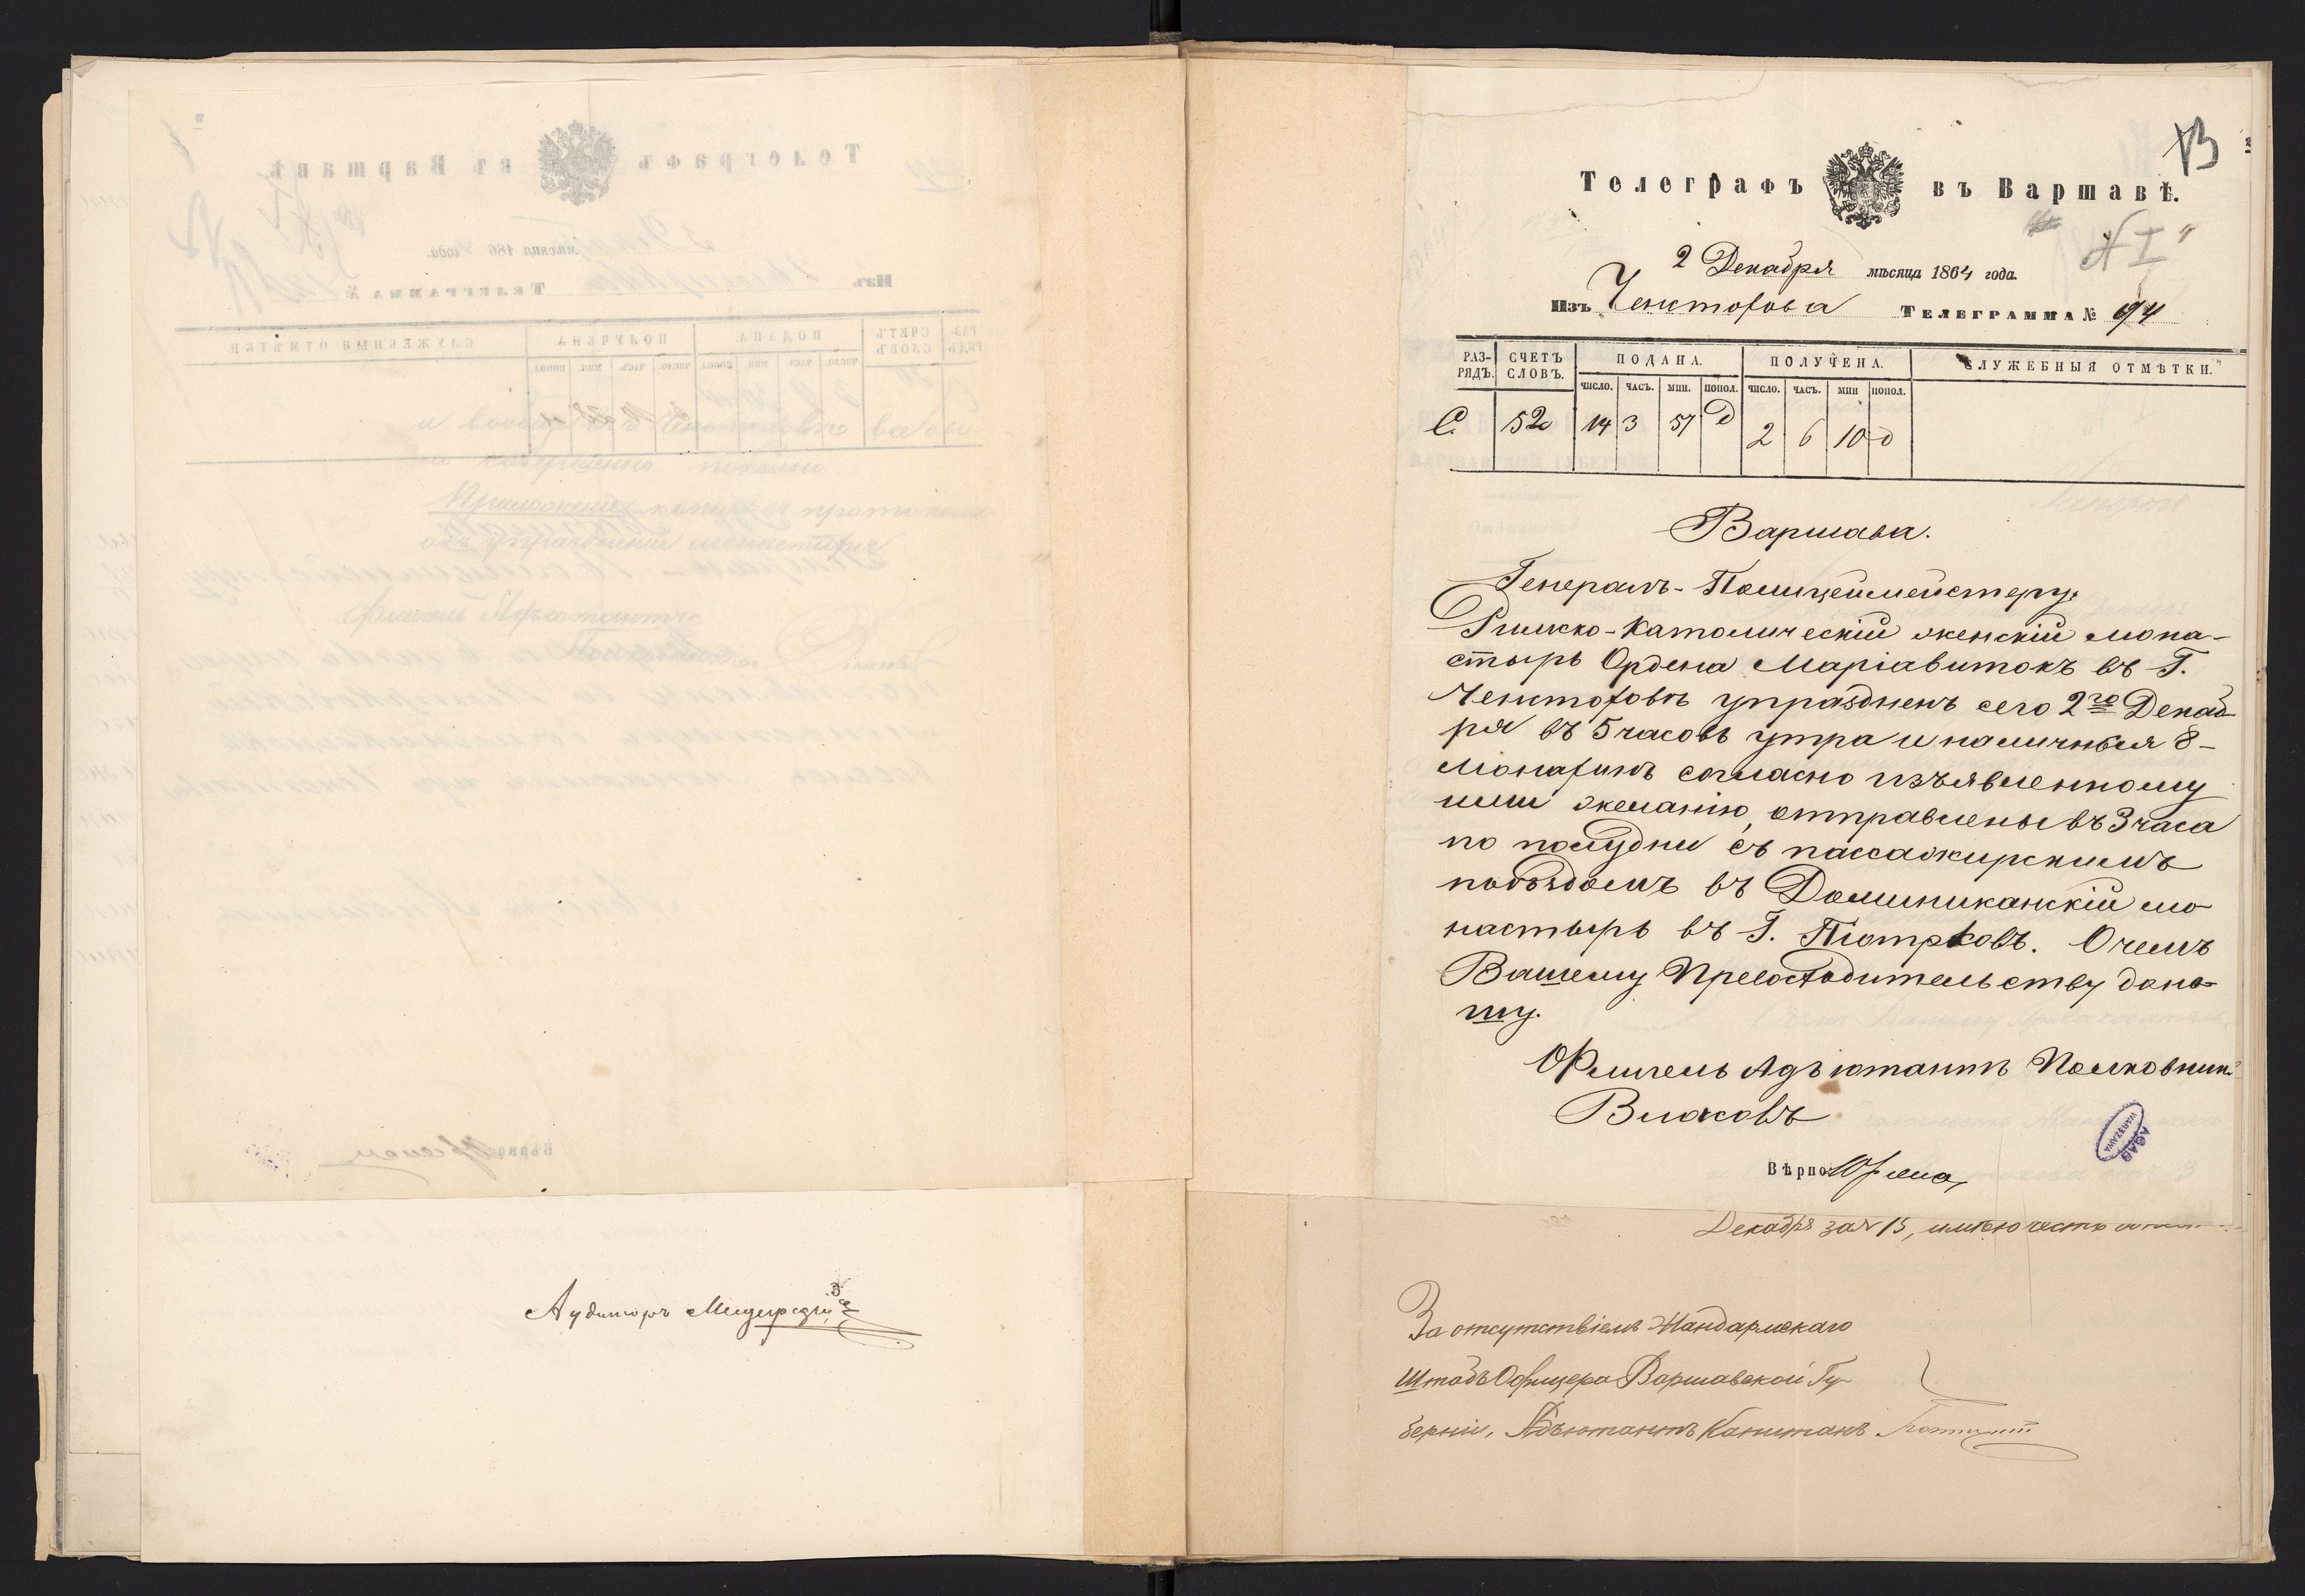 Аудиторъ
Телеграфъ въ Варшавѣ.
2 Декабря мѣсяца 1864 года.
Изъ Ченстохова Телеграмма № 694
РАЗ-РЯДЪ. СЧЕТЪ СЛОВЪ. ПОДАНА. ПОЛУЧЕНА. СЛУЖЕБНЫЯ ОТМѢТКИ.
ЧИСЛО. ЧАСЪ. МИН. ПОПОЛ. ЧИСЛО. ЧАСЪ. МИН ПОПОЛ.
С. 52 14 3 57 д 2 6 10 д
Варшава.
Генералъ-Полицеймейстеру.
Римско-Католическій женскій мона-
стырь Ордена Маріавитокъ въ Г.
Ченстоховѣ упраздненъ сего 2го Декаб-
ря въ 5 часовъ утра и наличныя 8-
Монахинь согласно изъявленному
ими желанію, отправлены въ 3 часа
по полудни съ пассажирскимъ
поѣздомъ въ Доминиканскій мо
настырь въ Г. Піотрковъ. О чемъ
Вашему Превосходительству доно-
шу.
Флигель Адъютантъ Полковник
Власовъ
Вѣрно:
AGAD
WARSZAWA
Декабря за № 15, имѣю честь
За отсутствіемъ Жандармскаго
Штабъ Офицера Варшавской Гу-
берніи, Адъютантъ Капитанъ